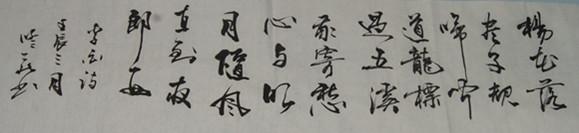 楊花落
盡子規
啼聞
道龍標
過五溪
我寄愁
心与明
月隨風
直到夜
郎西
李白詩
壬辰三月
書